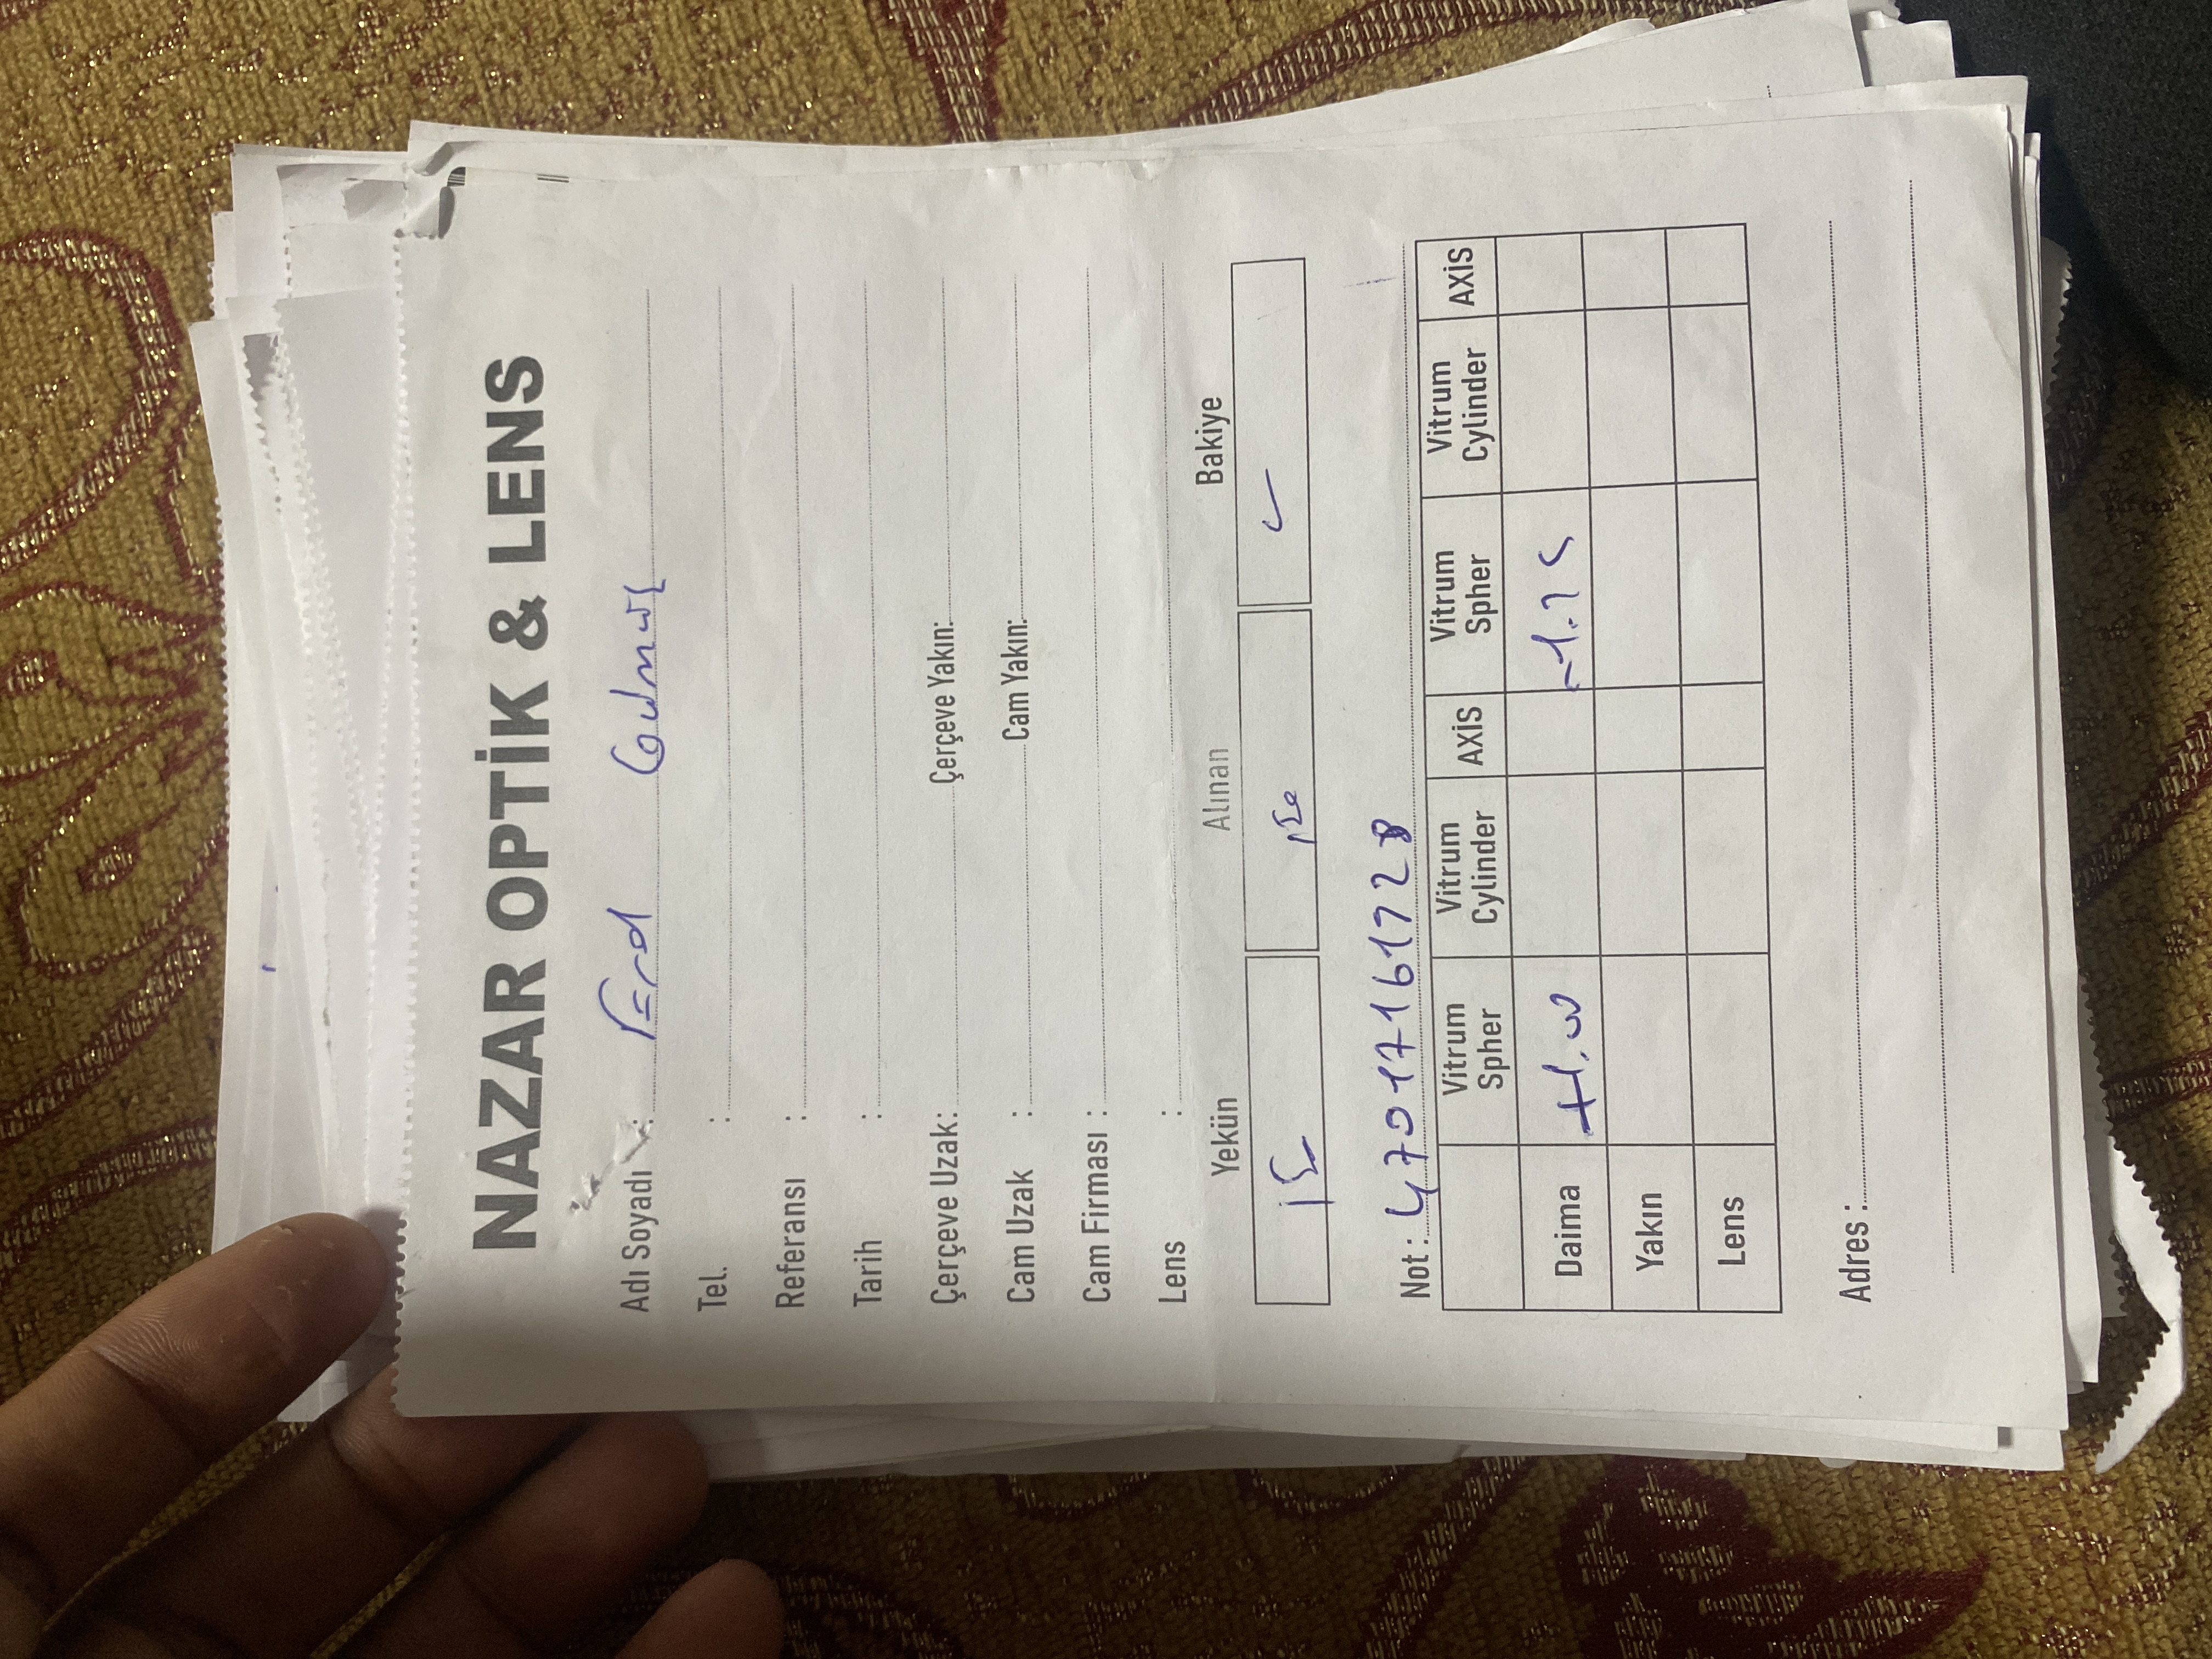 NAZAR OPTİK & LENS
Adı Soyadı : Erol Gümüş
Tel. :
Referansı :
Tarih :
Çerçeve Uzak: Çerçeve Yakın:
Cam Uzak : Cam Yakın:
Cam Firması :
Lens :
Yekün Alınan Bakiye
Not : 47017161728
Vitrum Spher Vitrum Cylinder AXİS Vitrum Spher Vitrum Cylinder AXİS
Daima +1.00 -1.25
Yakın
Lens
Adres :